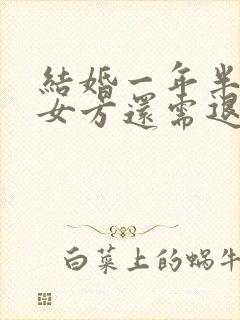 結婚一年半
女方還需退
白菜上的蜗牛